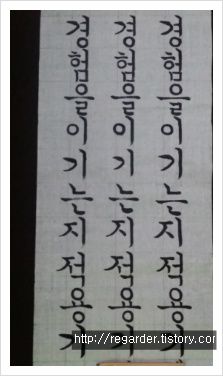 경험을이기는지점용기
경험을이기는지점용기
경험을이기는지점용기
http://regarder.tistory.com